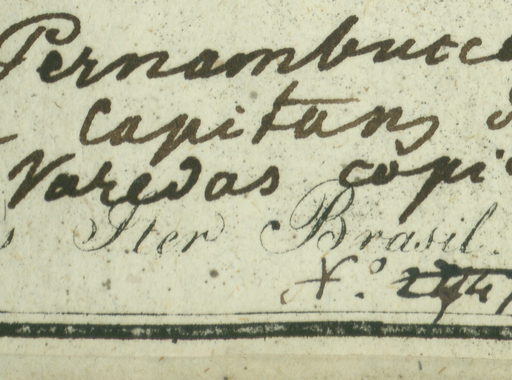 Pernambucc
Capitans
Varedas copi
s Iter Brasil.
N.º